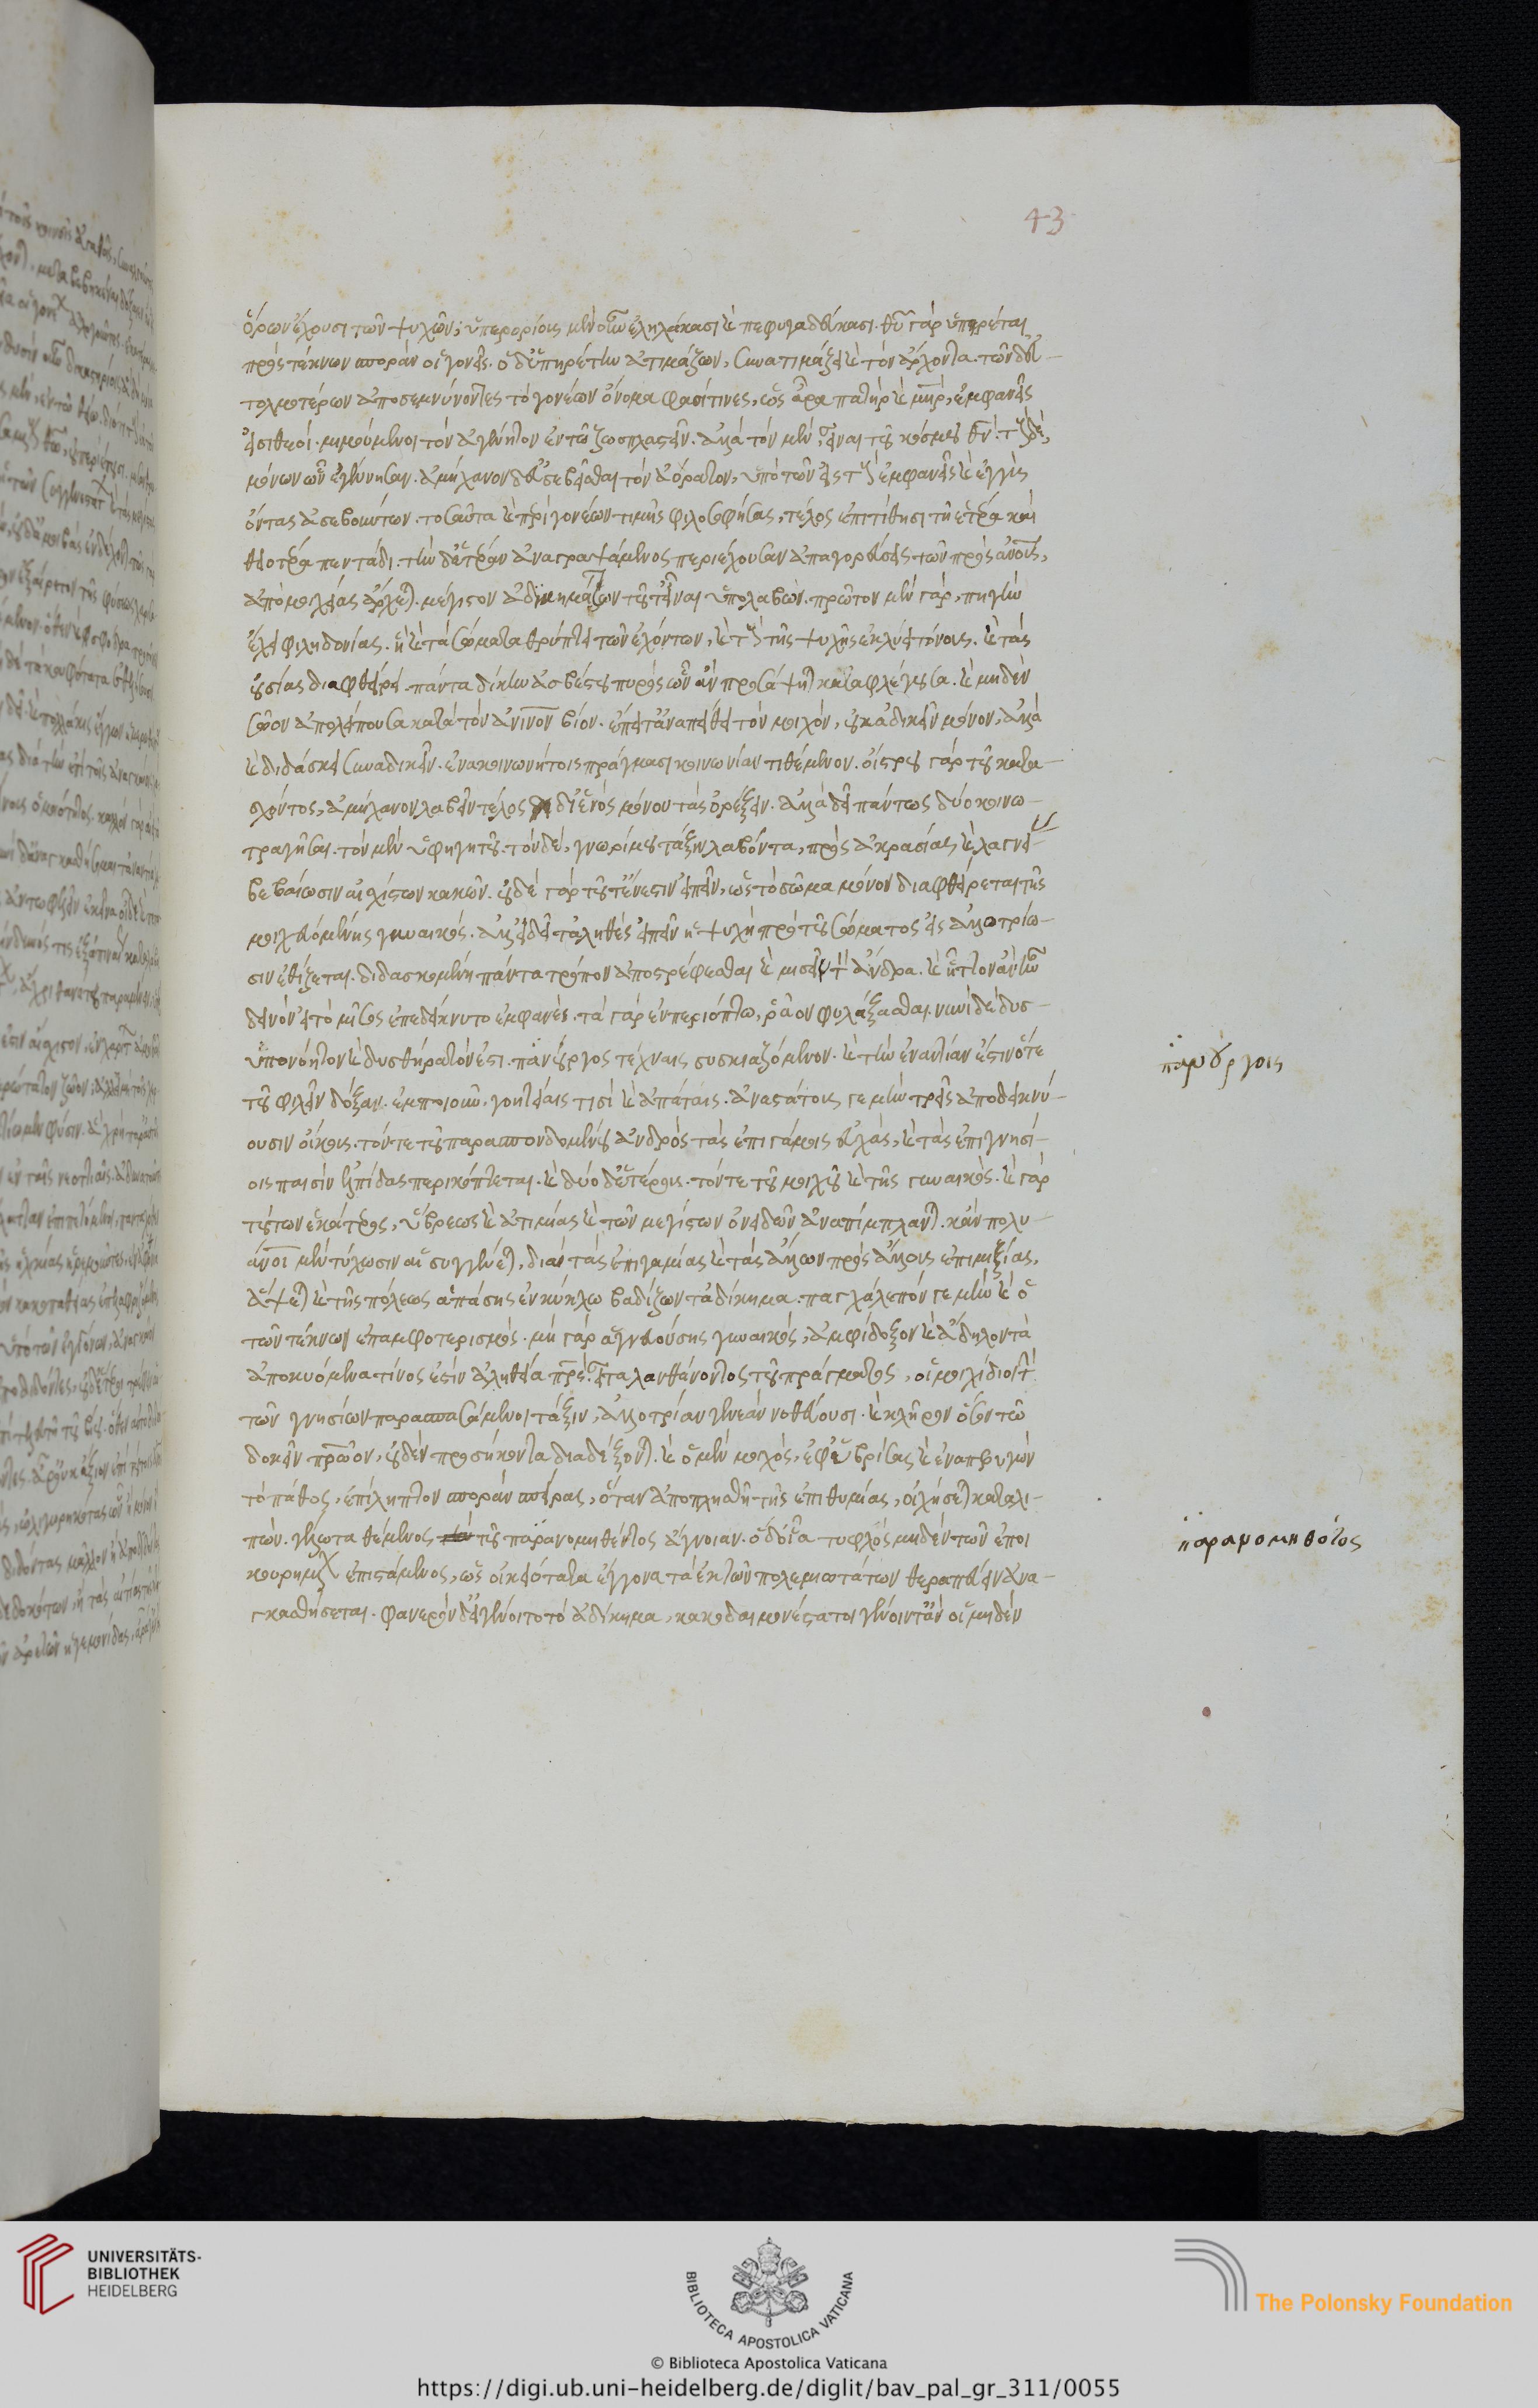 43
ὅρων ἔχουσι τῶν ψυχῶν; ὑπερορίοις μὲν οὖν ἐληλάκασι καὶ πεφυγαδεύκασι. θῦ γὰρ ὑπηρέται
πρὸς τέκνων σπορὰν οἱ γονεῖς. ὁ δ' ὑπηρέτην ἀτιμάζων, συνατιμάζει καὶ τὸν ἄρχοντα. τῶν δ' εὐ-
τολμοτέρων ἀποσεμνύνοντες τὸ γονέων ὄνομα φασί τινες, ὡς ἄρα πατὴρ καὶ μηρ, ἐμφανεῖς
εἰσι θεοί. μιμούμενοι τὸν ἀγέννητον ἐν τῶ ζωοπλαστεῖν. ἀλλὰ τὸν μὲν, εἶναι τοῦ κόσμου θν. τοὺς δὲ,
μόνων ὧν ἐγέννησαν. ἀμήχανον δ' εὐσεβεῖσθαι τὸν ἀόρατον, ὑπὸ τῶν εἰς τοὺς ἐμφανεῖς καὶ ἐγγὺς
ὄντας ἀσεβούντων. τοσαῦτα καὶ περὶ γονέων τιμῆς φιλοσοφήσας, τέλος ἐπιτίθησι τῆ ἑτέρα καὶ
θειοτέρα πεντάδι. τὴν δ' ἑτέραν ἀναγραψάμενος περιέχουσαν ἀπαγορεύσεις τῶν πρὸς ἀνοις,
ἀπὸ μοιχείας ἄρχεται. μέγιστον ἀδικημάτων τοῦτ' εἶναι ὑπολαβών. πρῶτον μὲν γὰρ, πηγὴν
ἔχει φιληδονίας. ἣ καὶ τὰ σώματα θρύπτει τῶν ἐχόντων, καὶ τοὺς τῆς ψυχῆς ἐκλύει τόνους. καὶ τὰς
οὐσίας διαφθείρει. πάντα δίκην ἀσβέστου πυρὸς ὧν ἂν προσάψηται καταφλέγουσα. καὶ μηδὲν
σῶον ἀπολείπουσα κατὰ τὸν ἀνινον βίον. ἔπειτ' ἀναπείθει τὸν μοιχὸν, οὐκ ἀδικεῖν μόνον, ἀλλὰ
καὶ διδάσκει συναδικεῖν. ἐν ἀκοινωνήτοις πράγμασι κοινωνίαν τιθέμενον. οἴστρου γὰρ τοῦ κατα-
σχόντος, ἀμήχανον λαβεῖν τέλος δι' ἑνὸς μόνου τὰς ὀρέξεις. ἀλλὰ δεῖ πάντως δύο κοινο-
πραγῆσαι. τὸν μὲν ὑφηγητοῦ. τὸν δὲ, γνωρίμου τάξιν λαβόντα, πρὸς ἀκρασίας καὶ λαγνείας
βεβαίωσιν αἰσχίστων κακῶν. οὐδὲ γὰρ τοῦτ' ἔνεστιν εἰπεῖν, ὡς τὸ σῶμα μόνον διαφθείρεται τῆς
μοιχευομένης γυναικός. ἀλλ' εἰ δεῖ τἀληθὲς εἰπεῖν ἡ ψυχὴ πρὸ τοῦ σώματος εἰς ἀλλοτρίω-
σιν ἐθίζεται. διδασκομένη πάντα τρόπον ἀποστρέφεσθαι καὶ μισεῖν τὸν ἄνδρα. καὶ ἧττον ἂν ἦν
δεινὸν εἰ τὸ μῖσος ἐπεδείκνυτο ἐμφανές. τὰ γὰρ ἐν περιόπτω, ῥᾶον φυλάξασθαι. νυνὶ δὲ δυσ-
υπονόητον καὶ δυσθήρατόν ἐστι. πανούργος τέχναις συσκιαζόμενον. καὶ τὴν ἐναντίαν ἔστιν ὅτε
τοῦ φιλεῖν δόξαν. ἐμποιοῦν. γοητείαις τισὶ καὶ ἀπάταις. ἀναστάτους γε μὴν τρεῖς ἀποδεικνύ-
ουσιν οἴκους. τόν τε τοῦ παρασπονδουμένου ἀνδρὸς τὰς ἐπὶ γάμοις εὐχὰς, καὶ τὰς ἐπὶ γνησί-
οις παισὶν ἐλπίδας περικόπτεται. καὶ δύο δ' ἑτέρους. τόν τε τοῦ μοιχοῦ καὶ τῆς γυναικός. καὶ γὰρ
τούτων ἑκάτερος, ὕβρεως καὶ ἀτιμίας καὶ τῶν μεγίστων ὀνειδῶν ἀναπίμπλαται. κἂν πολυ-
άνοι μὲν τύχωσιν αἱ συγγένειαι, διὰ τὰς ἐπιγαμίας καὶ τὰς ἄλλων πρὸς ἄλλους ἐπιμιξίας,
ἅψεται καὶ τῆς πόλεως ἁπάσης ἐν κύκλω βαδίζων τἀδίκημα. παγχάλεπόν γε μὴν καὶ ὁ
τῶν τέκνων ἐπαμφοτερισμός. μὴ γὰρ ἁγνευούσης γυναικὸς, ἀμφίδοξον καὶ ἄδηλον τὰ
ἀποκυόμενα τίνος ἐστὶν ἀληθεία πρς. εἶτα λανθάνοντος τοῦ πράγματος, οἱ μοιχίδιοι τὴν
τῶν γνησίων παρασπασάμενοι τάξιν, ἀλλοτρίαν γενεὰν νοθεύουσι. καὶ κλῆρον ὅσον τῶ
δοκεῖν πρῶον, οὐδὲν προσήκοντα διαδέξονται. καὶ ὁ μὲν μοιχὸς, ἐφυβρίσας καὶ ἐναπερυγὼν
τὸ πάθος, ἐπίληπτον σπορὰν σπείρας, ὅταν ἀποπλησθῆ τῆς ἐπιθυμίας, οἰχήσεται καταλι-
πών. γέλωτα θέμενος τὴν τοῦ παρανομηθέντος ἄγνοιαν. ὁ δ' οἷα τυφλὸς μηδὲν τῶν ἐποι
κουρημένων ἐπιστάμενος, ὡς οἰκειότατα ἔγγονα τὰ ἐκ τῶν πολεμιωτάτων θεραπεύειν ἀνα-
γκασθήσεται. φανερὸν δ' εἰ γένοιτο τὸ ἀδίκημα, κακοδαιμονέστατοι γένοιντ' ἂν οἱ μηδὲν
πανούργοις
παρανομηθέντος
UNIVERSITÄTS-
BIBLIOTHEK
HEIDELBERG
BIBLIOTECA APOSTOLICA VATICANA
The Polonsky Foundation
© Biblioteca Apostolica Vaticana
https://digi.ub.uni-heidelberg.de/diglit/bav_pal_gr_311/0055